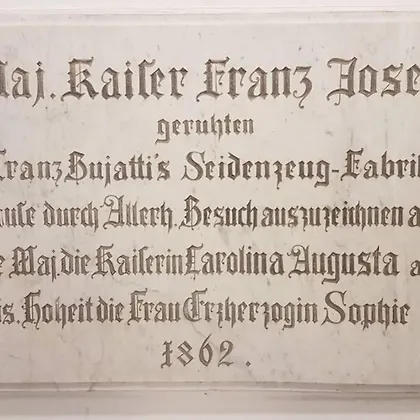 Maj. Kaiser Franz Jose
geruhten
Franz Bujatti's Seidenzeug-Fabrik
durch Allerh. Besuch auszuzeichnen a
Maj. die Kaiserin Carolina Augusta a
s. Hoheit die Frau Erzherzogin Sophie
1862.